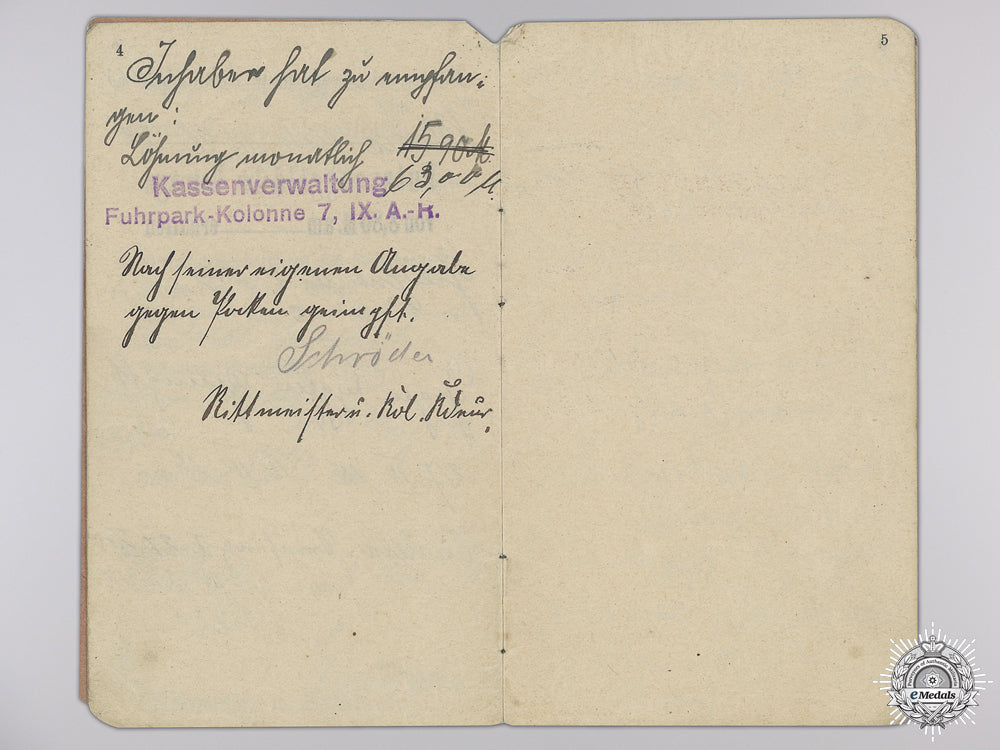 4
Inhaber hat zu empfan-
gen:
Löhnung monatlich 15,90 M.
63,00 M.
Kassenverwaltung
Fuhrpark-Kolonne 7, IX. A.-R.
Nach seiner eigenen Angabe
gegen Pocken geimpft.
Schröder
Rittmeister u. Kol. Kdeur.
5
eMedals